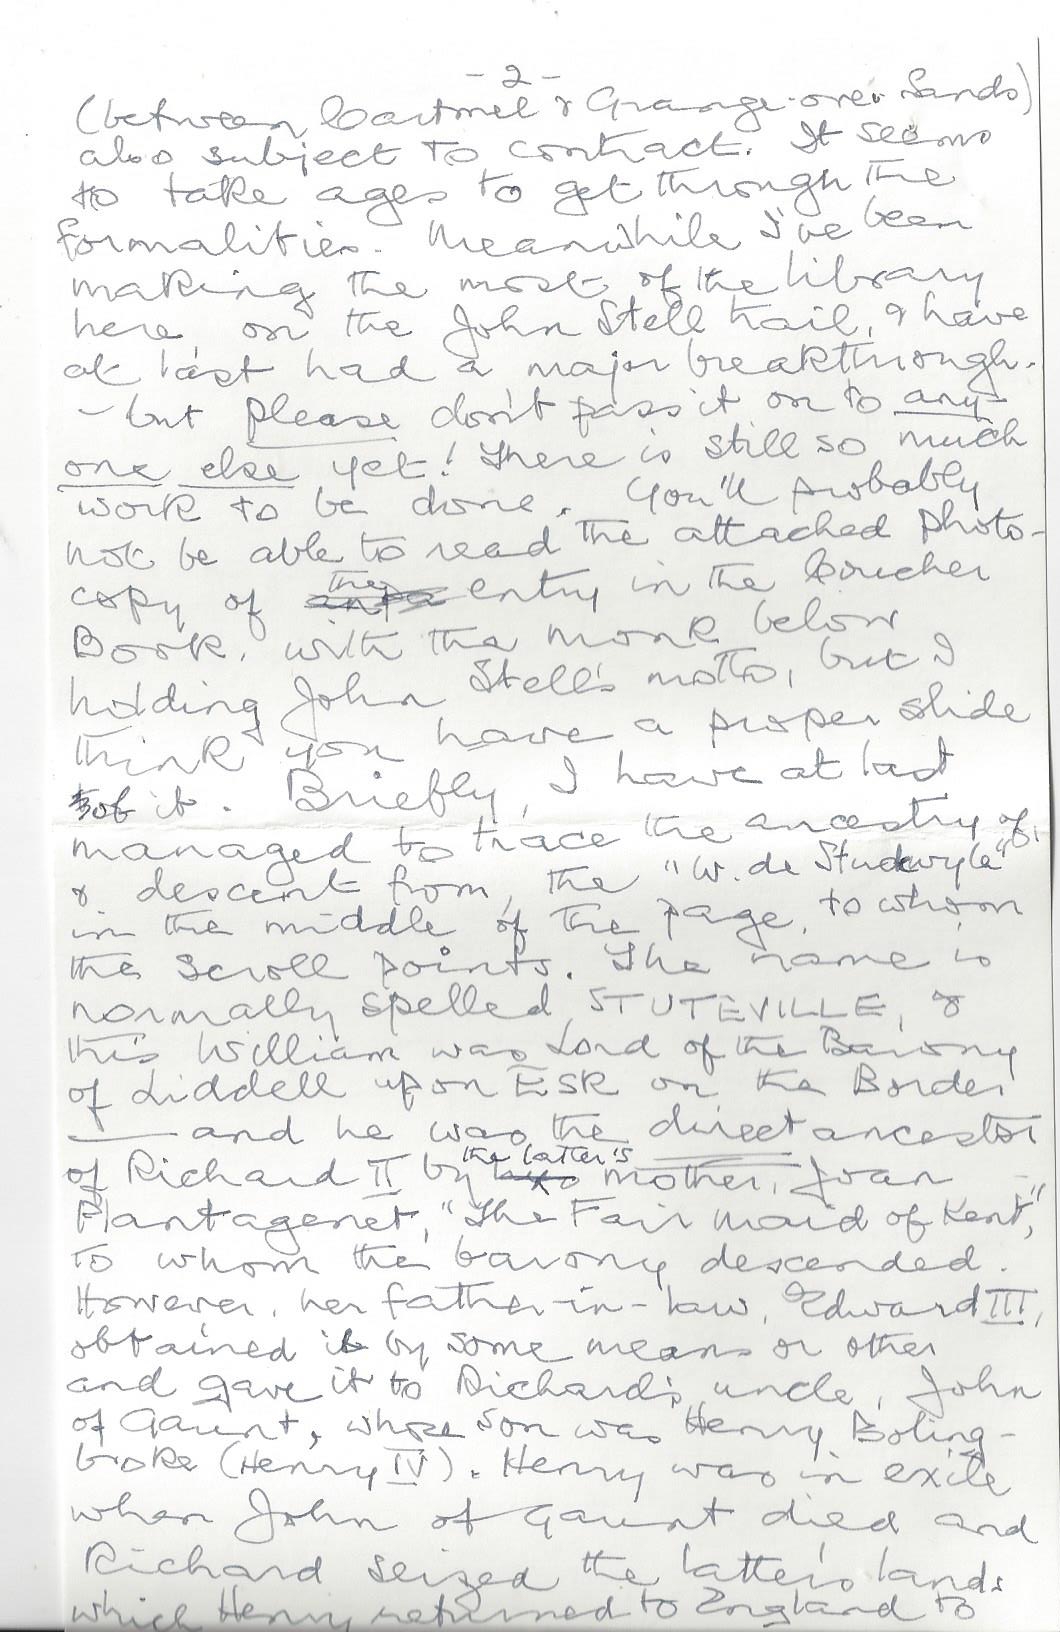 - 2 -
(between Cartmel & Grange-over-Sands)
also subject to contract. It seems
to take ages to get through the
formalities. Meanwhile I've been
making the most of the library
here, on the John Stell trail, & have
at last had a major breakthrough -
- but please don't pass it on to any-
one else yet! There is still so much
work to be done. You'll probably
not be able to read the attached photo-
copy of the entry in the Coucher
Book, with the monk below
holding John Stell's motto, but I
think you have a proper slide
of it. Briefly, I have at last
managed to trace the ancestry of,
& descent from, the "W. de Stutevyle"
in the middle of the page, to whom
the scroll points. The name is
normally spelled STUTEVILLE, &
this William was Lord of the Barony
of Liddell upon ESK on the Border
— and he was the direct ancestor
of Richard II by the latter's mother, Joan
Plantagenet, "The Fair Maid of Kent,"
to whom the barony descended.
However, her father-in-law, Edward III,
obtained it by some means or other
and gave it to Richard's uncle, John
of Gaunt, whose son was Henry Boling-
broke (Henry IV). Henry was in exile
when John of Gaunt died and
Richard seized the latter's lands
which Henry returned to England to